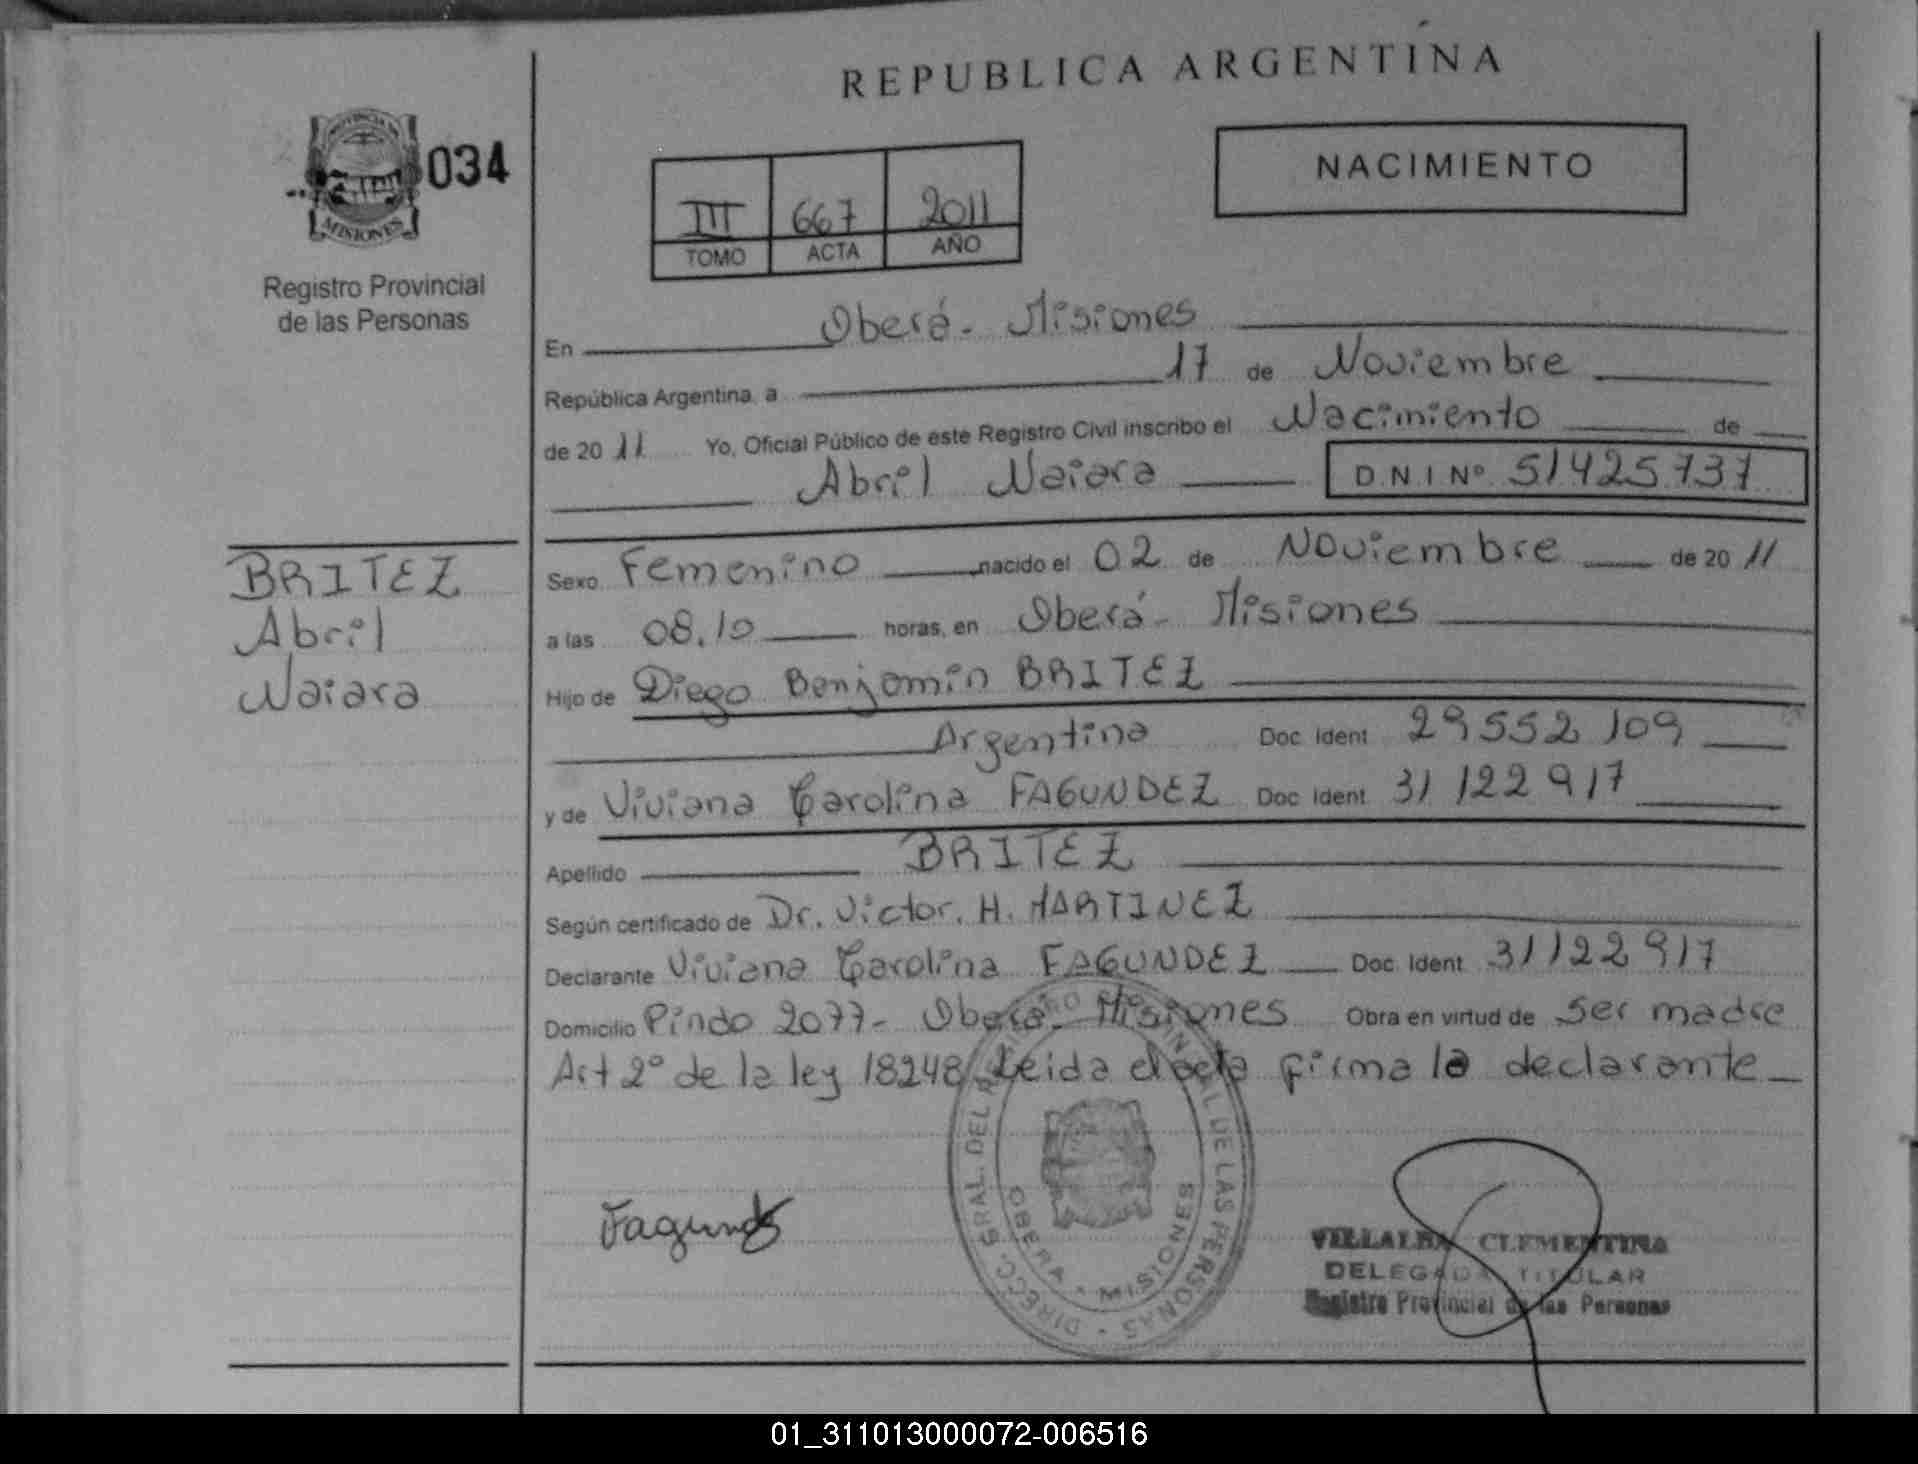 REPUBLICA ARGENTINA
PROVINCIA DE
MISIONES
034
Registro Provincial
de las Personas
NACIMIENTO
III 667 2011
TOMO ACTA AÑO
En Oberá - Misiones
República Argentina, a 17 de Noviembre
de 2011 Yo, Oficial Público de este Registro Civil inscribo el Nacimiento de
Abril Naiara D.N.I Nº 51425737
BRITEZ
Abril
Naiara
Sexo Femenino nacido el 02 de Noviembre de 2011
a las 08.10 horas, en Oberá - Misiones
Hijo de Diego Benjamín BRITEZ
Argentina Doc Ident 29552109
y de Viviana Carolina FAGUNDEZ Doc Ident 31122917
Apellido BRITEZ
Según certificado de Dr. Victor. H. MARTINEZ
Declarante Viviana Carolina FAGUNDEZ Doc Ident 31122917
Domicilio Pindo 2077- Oberá. Misiones Obra en virtud de ser madre
Art 2º de la ley 18248 Leida el acta firma la declarante
Fagundez
OBERA - MISIONES
VILLALBA CLEMENTINA
DELEGADA TITULAR
Registro Provincial de las Personas
01_311013000072-006516